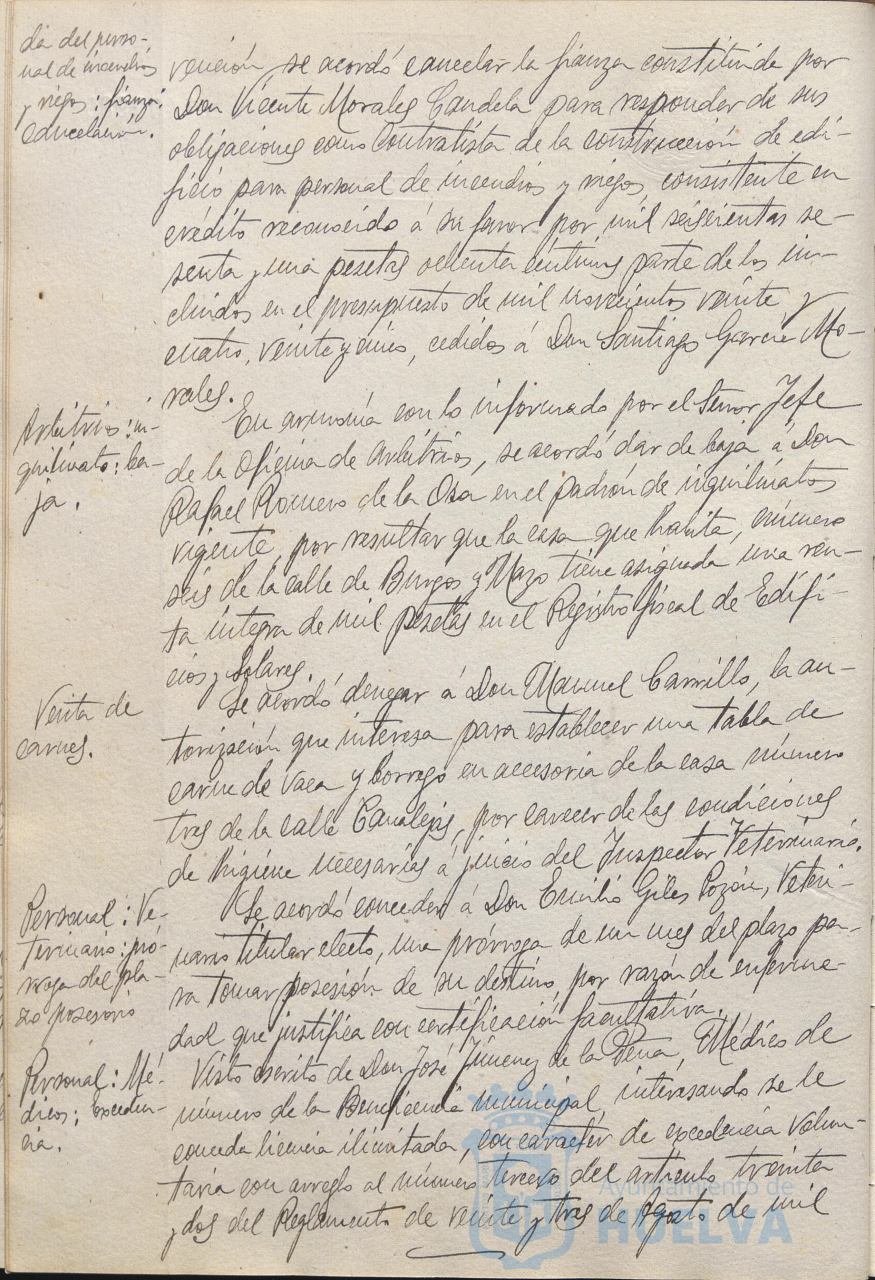 dia del perso-
nal de incendios
y riegos: fianza:
cancelación.
vención, se acordó cancelar la fianza constituida por
Don Vicente Morales Candela para responder de sus
obligaciones como Contratista de la construcción de edi-
ficio para personal de incendios y riegos, consistente en
crédito reconocido á su favor por mil seiscientas se-
senta y una pesetas ochenta céntimos parte de los in-
cluidos en el presupuesto de mil novecientos veinte y
cuatro, veinte y cinco, cedidos á Don Santiago García Mo-
rales.
Arbitrios: in-
quilinato: ba-
ja.
En armonía con lo informado por el Señor Jefe
de la Oficina de Arbitrios, se acordó dar de baja á Don
Rafael Romero de la Osa en el padrón de inquilinatos
vigente, por resultar que la casa que habita, número
seis de la calle de Burgos y Mazo tiene asignada una ren-
ta íntegra de mil pesetas en el Registro fiscal de Edifi-
cios y Solares.
Venta de
carnes.
Se acordó denegar á Don Manuel Carrillo, la au-
torización que interesa para establecer una tabla de
carne de vaca y borrego en accesoria de la casa número
tres de la calle Canalejas, por carecer de las condiciones
de higiene necesarias á juicio del Inspector Veterinario.
Personal: Ve-
terinario: pró-
rroga del pla-
zo posesorio
Se acordó conceder á Don Emilio Giles Pozón, Veteri-
nario titular electo, una prórroga de un mes del plazo pa-
ra tomar posesión de su destino, por razón de enferme-
dad que justifica con certificación facultativa.
Personal: Mé-
dicos: exceden-
cia.
Visto escrito de Don José Jimenez de la Peña, Médico de
número de la Beneficencia municipal, interesando se le
conceda licencia ilimitada, con carácter de excedencia volun-
taria con arreglo al número tercero del artículo treinta
y dos del Reglamento de veinte y tres de Agosto de mil
Ayuntamiento de
HUELVA